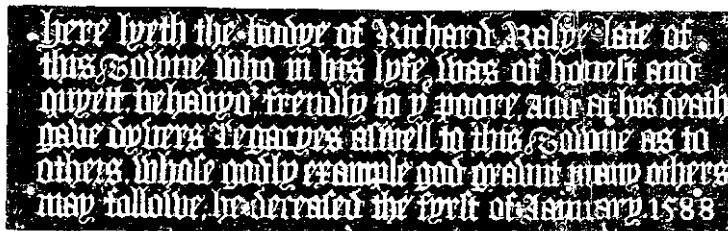 here lyeth the bodye of Richard Ralye late of
this Towne who in his lyfe was of honest and
quyett behauyor frendly to ye poore, and at his death
gave dyvers Legacyes aswell to this Towne as to
others, whose godly example god graunt many others
may followe, he deceased the fyrst of January 1588